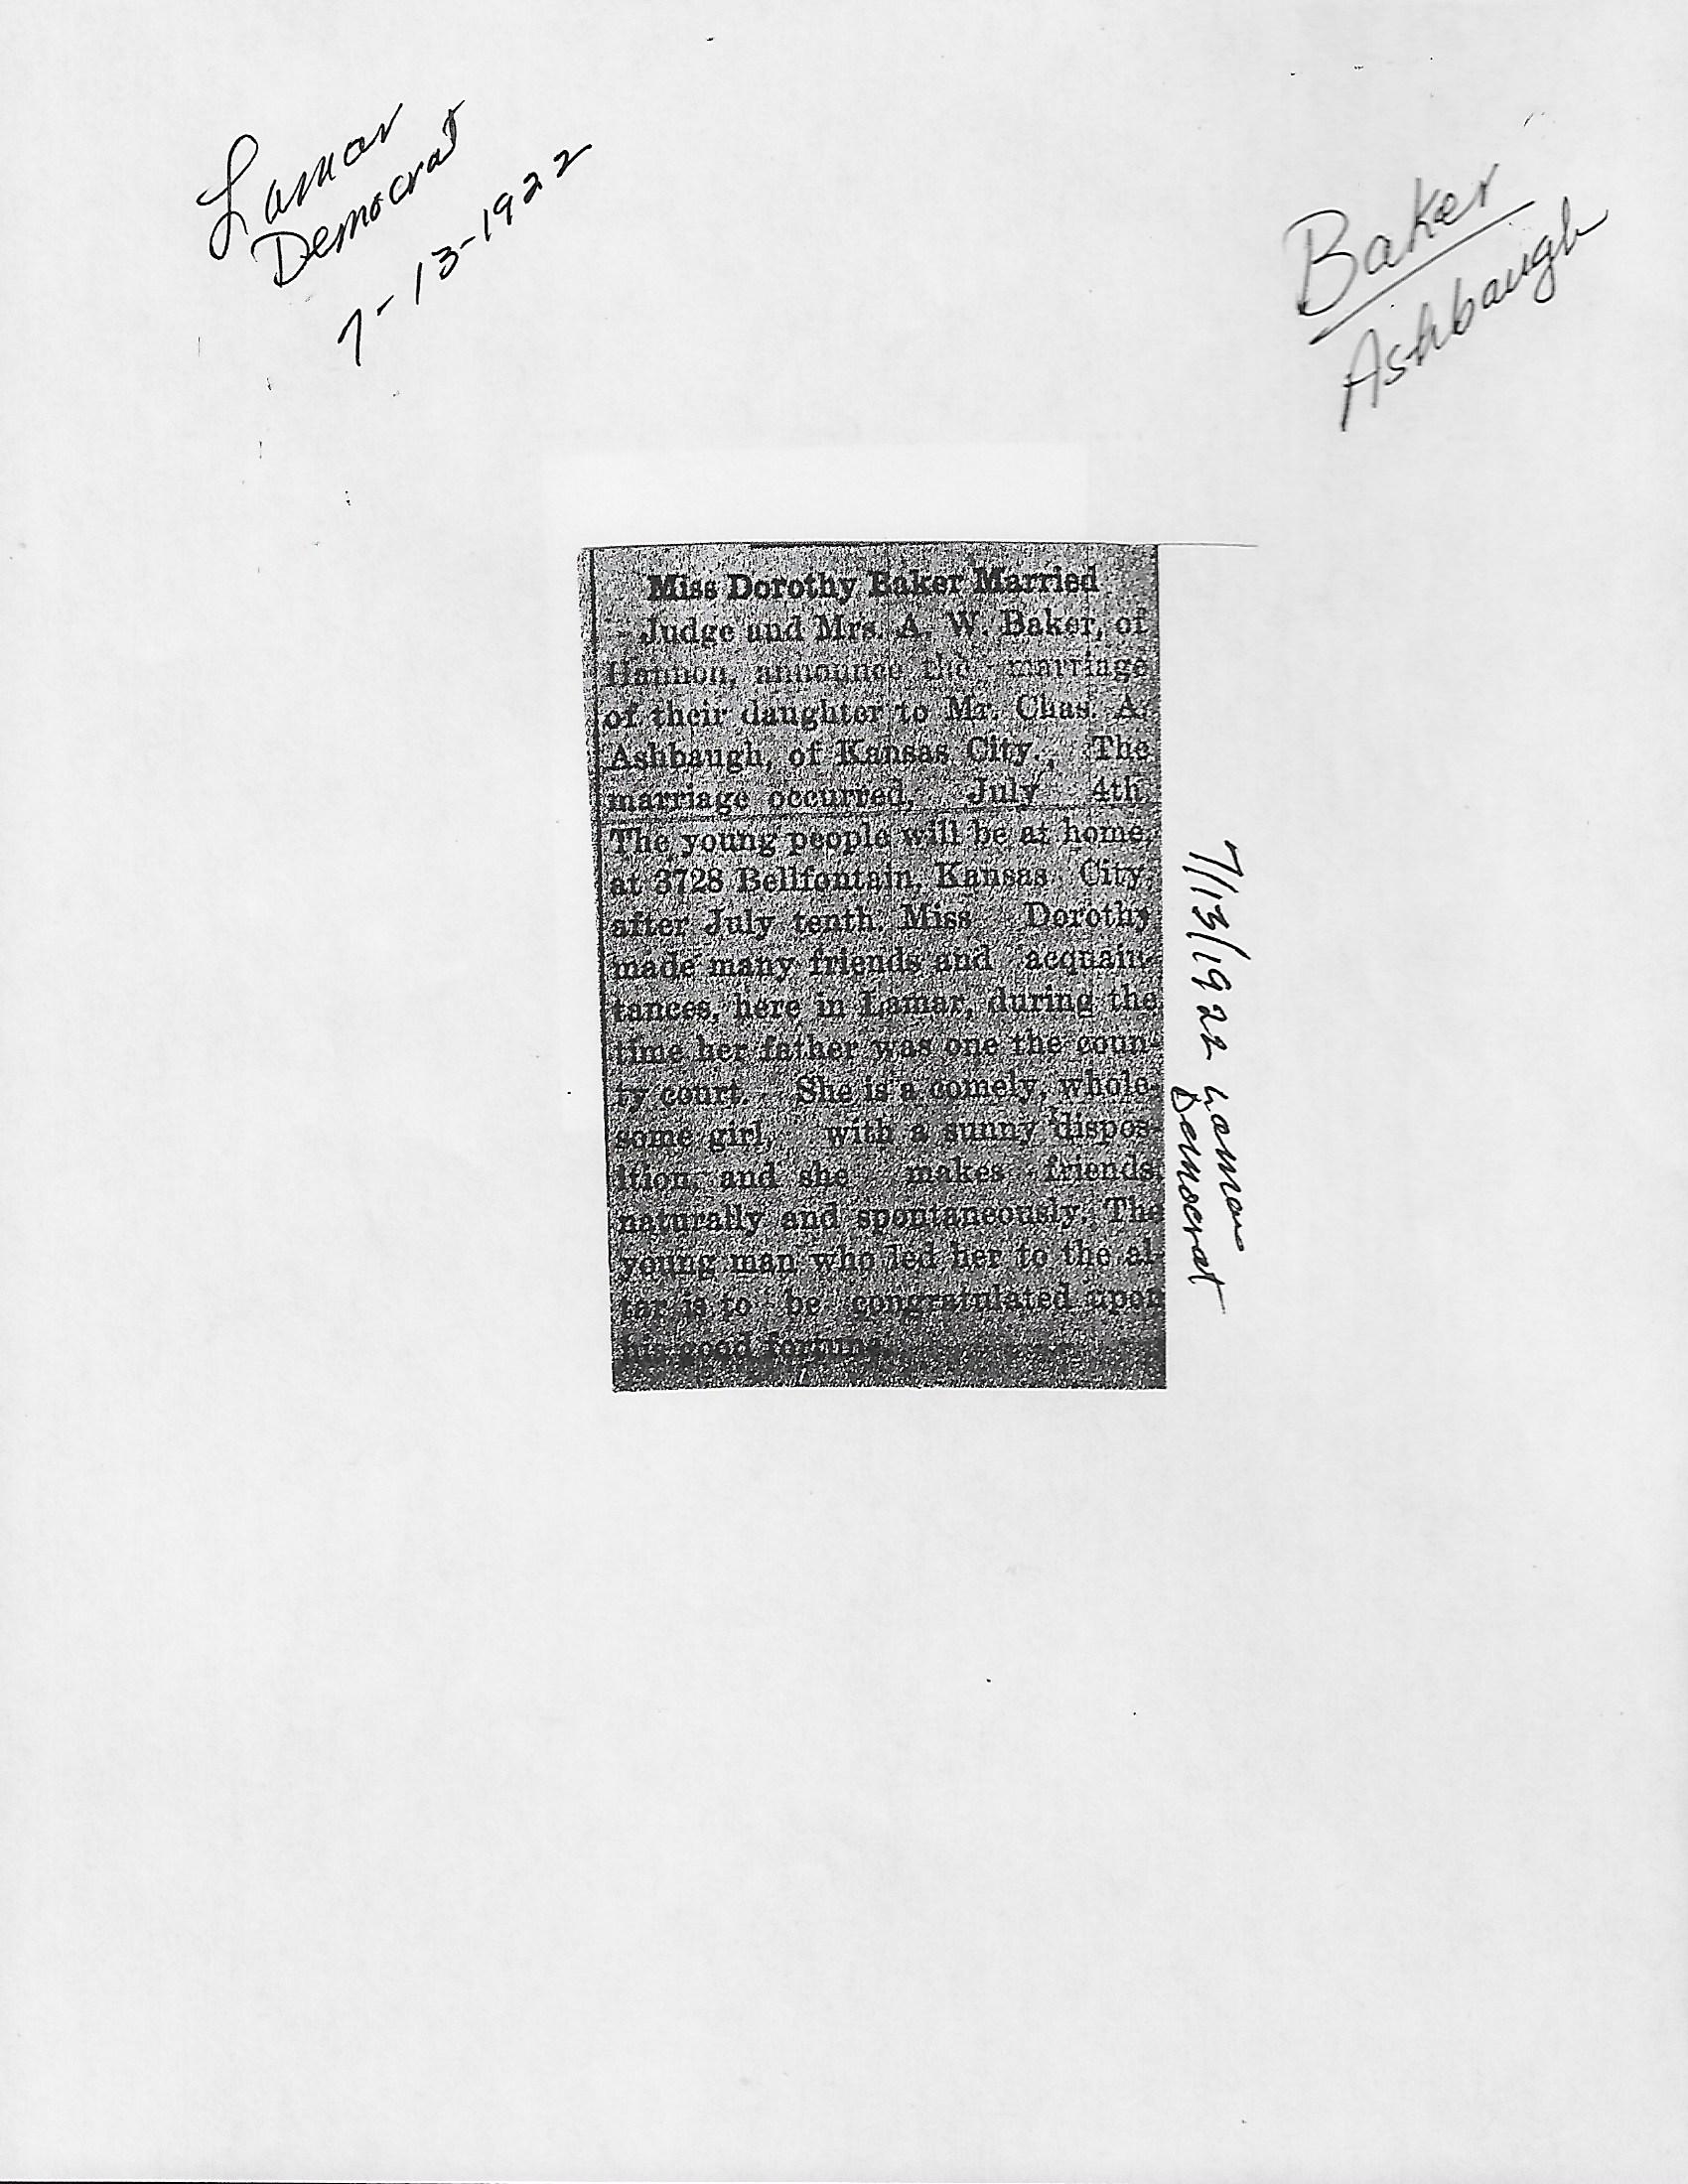 Lamar
Democrat
7-13-1922
Baker
Ashbaugh
Miss Dorothy Baker Married
Judge and Mrs. A. W. Baker, of
Hannon, announce the marriage
of their daughter to Mr. Chas. A.
Ashbaugh, of Kansas City., The
marriage occurred, July 4th.
The young people will be at home,
at 3728 Bellfontain, Kansas City,
after July tenth. Miss Dorothy
made many friends and acquain-
tances, here in Lamar, during the
time her father was one the coun-
ty court. She is a comely, whole-
some girl, with a sunny dispos-
ition, and she makes friends
naturally and spontaneously. The
young man who led her to the al-
tar is to be congratulated upon
his good fortune.
7/13/1922 Lamar
Democrat